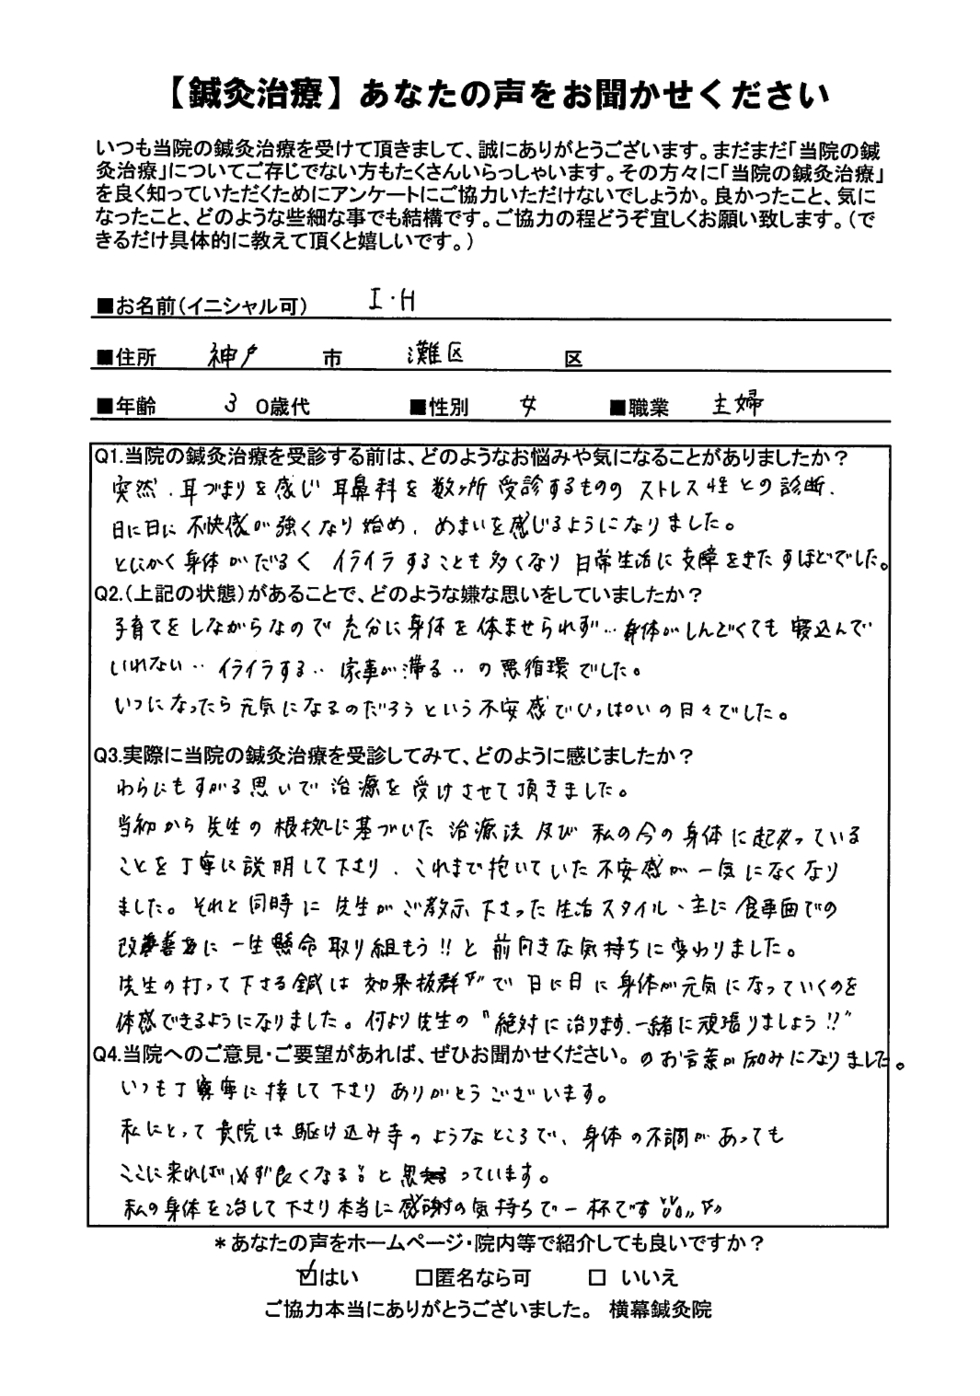 【鍼灸治療】あなたの声をお聞かせください
いつも当院の鍼灸治療を受けて頂きまして、誠にありがとうございます。まだまだ「当院の鍼
灸治療」についてご存じでない方もたくさんいらっしゃいます。その方々に「当院の鍼灸治療」
を良く知っていただくためにアンケートにご協力いただけないでしょうか。良かったこと、気に
なったこと、どのような些細な事でも結構です。ご協力の程どうぞ宜しくお願い致します。（で
きるだけ具体的に教えて頂くと嬉しいです。）
■お名前（イニシャル可） I・H
■住所 神戸 市 灘区 区
■年齢 3 0歳代 ■性別 女 ■職業 主婦
Q1.当院の鍼灸治療を受診する前は、どのようなお悩みや気になることがありましたか？
突然、耳づまりを感じ耳鼻科を数ヶ所受診するもののストレス性との診断、
日に日に不快感が強くなり始め、めまいを感じるようになりました。
とにかく身体がだるくイライラすることも多くなり日常生活に支障をきたすほどでした。
Q2.（上記の状態）があることで、どのような嫌な思いをしていましたか？
子育てをしながらなので充分に身体を休ませられず…身体がしんどくても寝込んで
いれない‥イライラする‥家事が滞る‥の悪循環でした。
いつになったら元気になるのだろうという不安感でいっぱいの日々でした。
Q3.実際に当院の鍼灸治療を受診してみて、どのように感じましたか？
わらにもすがる思いで治療を受けさせて頂きました。
当初から先生の根拠に基づいた治療法及び私の今の身体に起こっている
ことを丁寧に説明して下さり、これまで抱いていた不安感が一気になくなり
ました。それと同時に先生がご教示下さった生活スタイル・主に食事面での
改善に一生懸命取り組もう!!と前向きな気持ちに変わりました。
先生の打って下さる鍼は効果抜群で日に日に身体が元気になっていくのを
体感できるようになりました。何より先生の"絶対に治ります、一緒に頑張りましょう!!"
Q4.当院へのご意見・ご要望があれば、ぜひお聞かせください。 のお言葉が励みになりました。
いつも丁寧に接して下さりありがとうございます。
私にとって貴院は駆け込み寺のようなところで、身体の不調があっても
ここに来れば必ず良くなる!と思っています。
私の身体を治して下さり本当に感謝の気持ちで一杯です
＊あなたの声をホームページ・院内等で紹介しても良いですか？
☑はい □匿名なら可 □ いいえ
ご協力本当にありがとうございました。 横幕鍼灸院